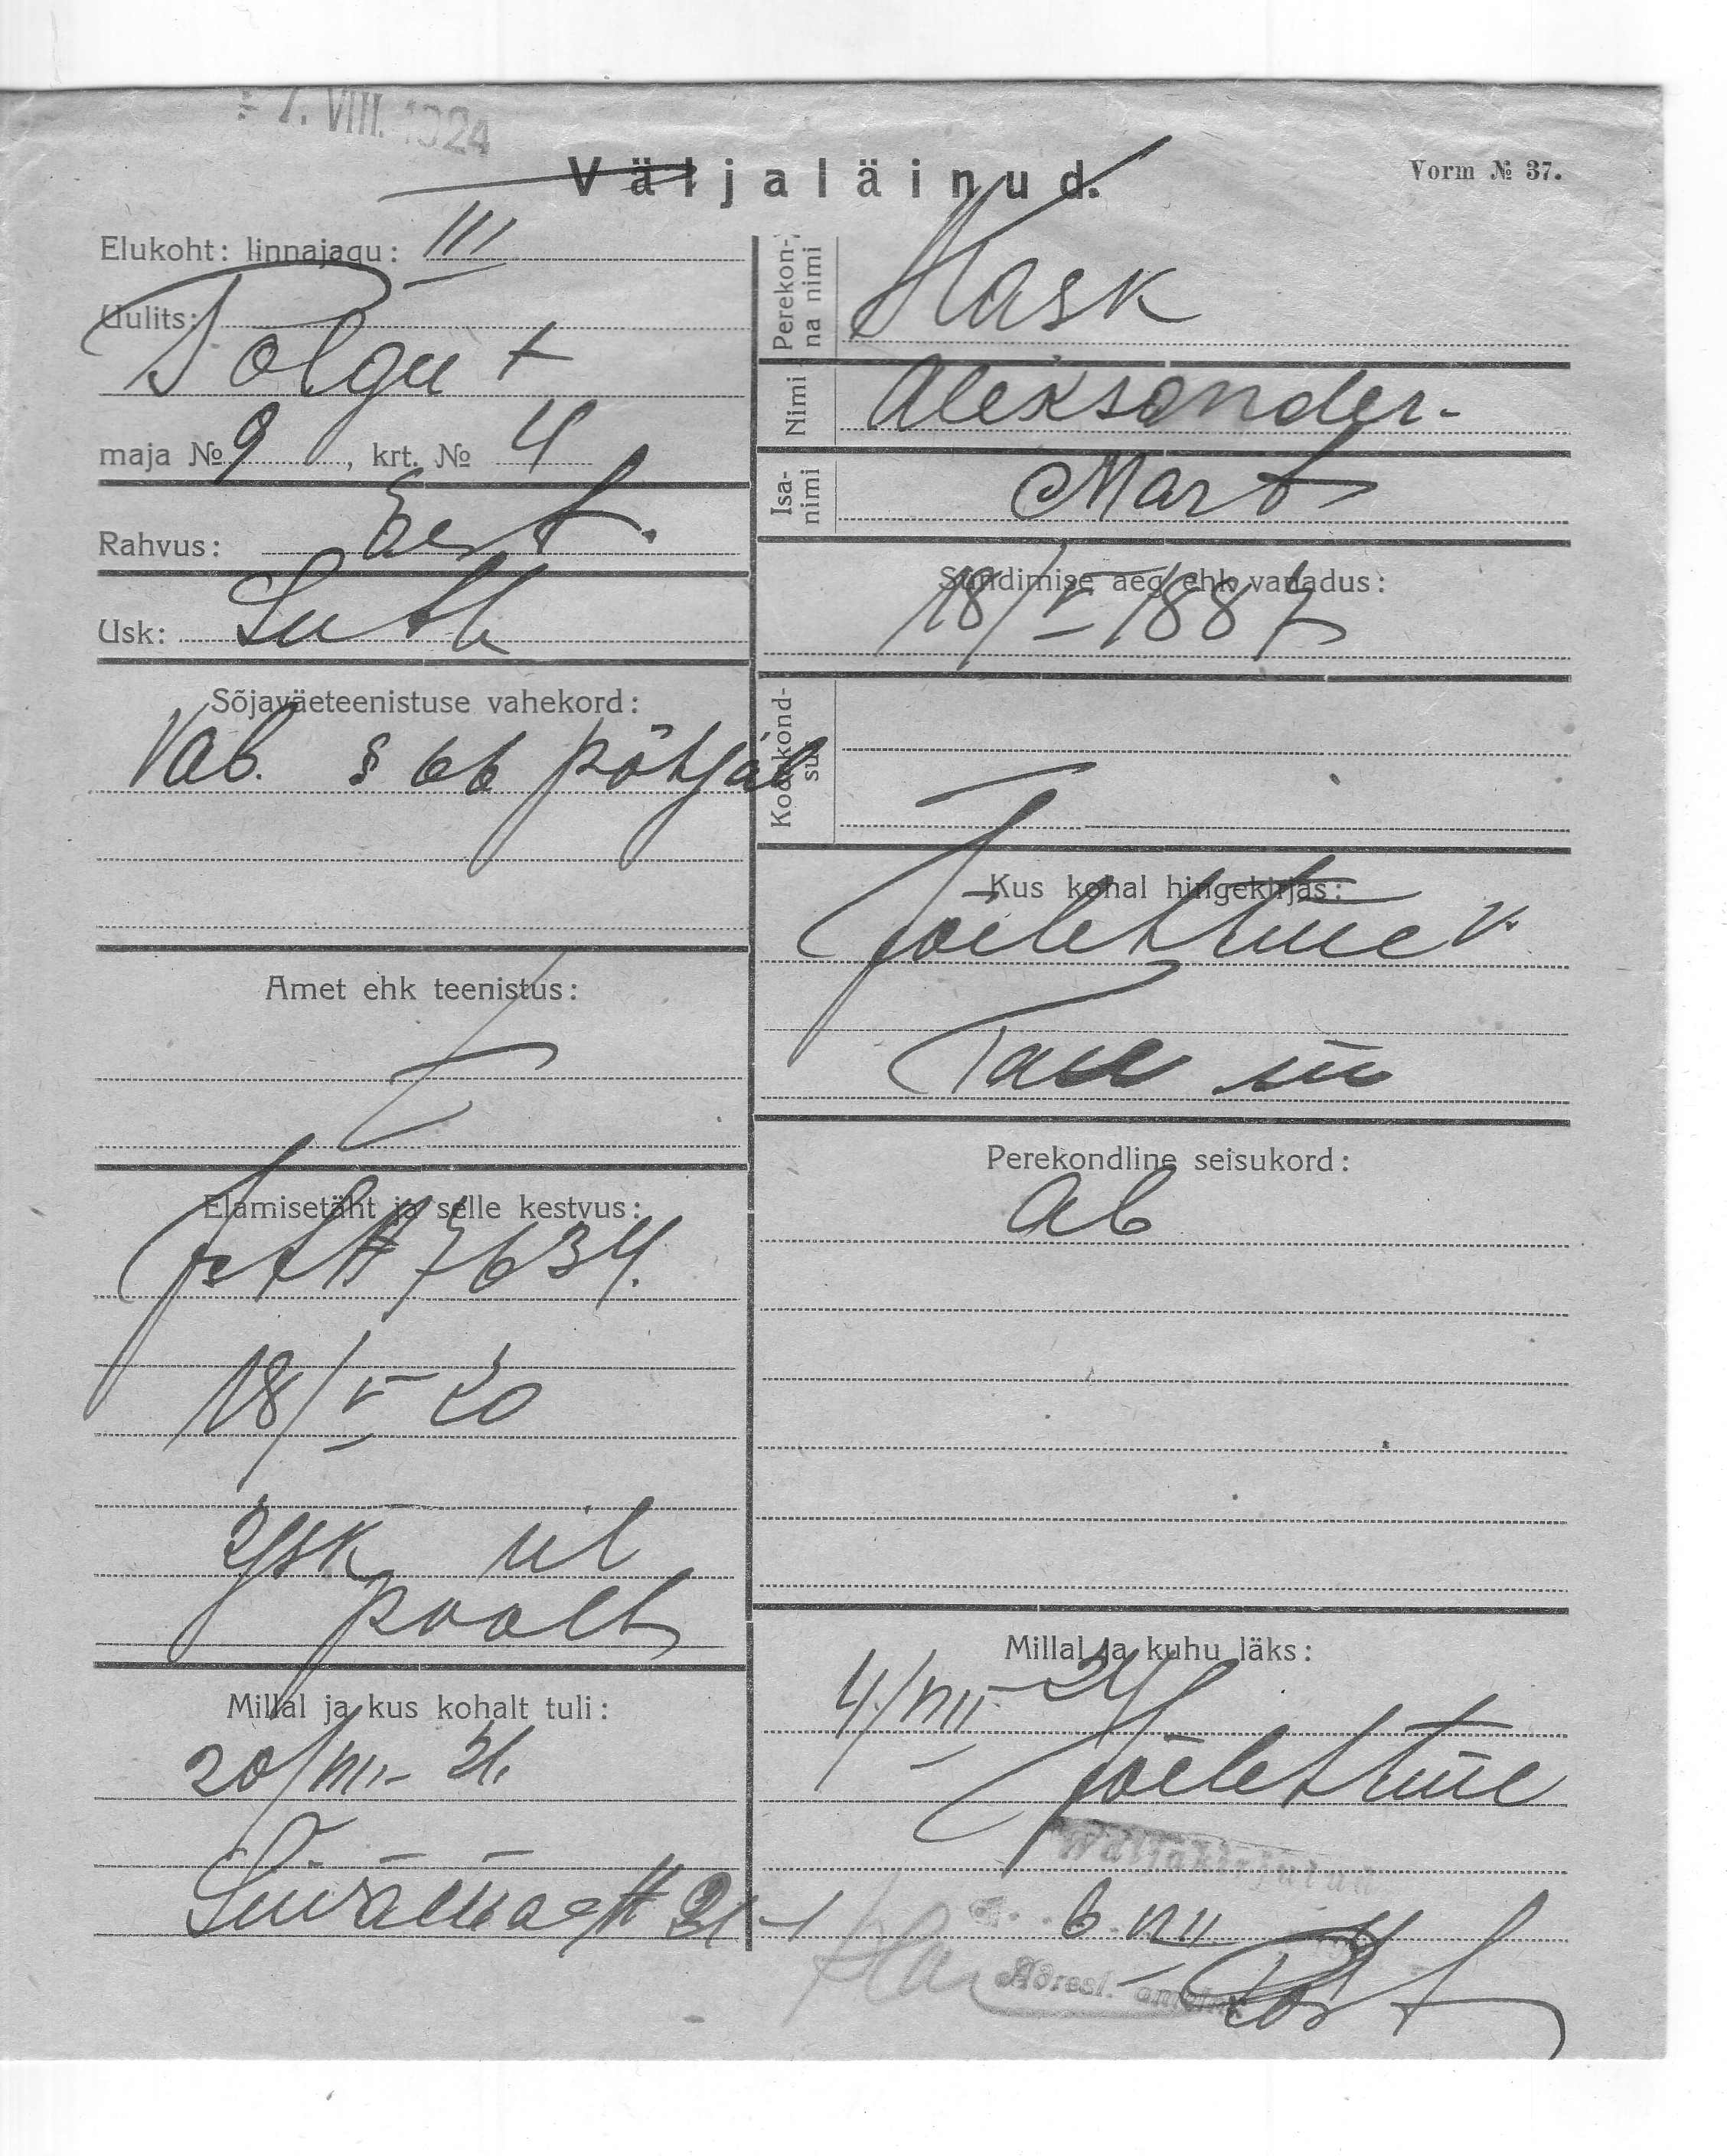 7. VIII. 1924
Väljaläinud.
Vorm № 37.
Elukoht: linnajagu: III
Uulits:
Polgu t
maja № 9, krt. № 4
Rahvus: Eest.
Usk: Luth
Sõjaväeteenistuse vahekord:
Vab. § 66 põhjal
Amet ehk teenistus:
Elamisetäht ja selle kestvus:
7634.
18/V 20
poolt
Millal ja kus kohalt tuli:
20/VII 21.
Perekonna nimi
Nimi Aleksander-
Isanimi Mart
Sündimise aeg ehk vanadus:
18/V 1887
Kodakondsus
Kus kohal hingekirjas:
Jõelehtme v.
Perekondline seisukord:
ab
Millal ja kuhu läks:
4/VIII 24
Jõelehtme
Wäljakirjutud
6 VIII
Adresl.